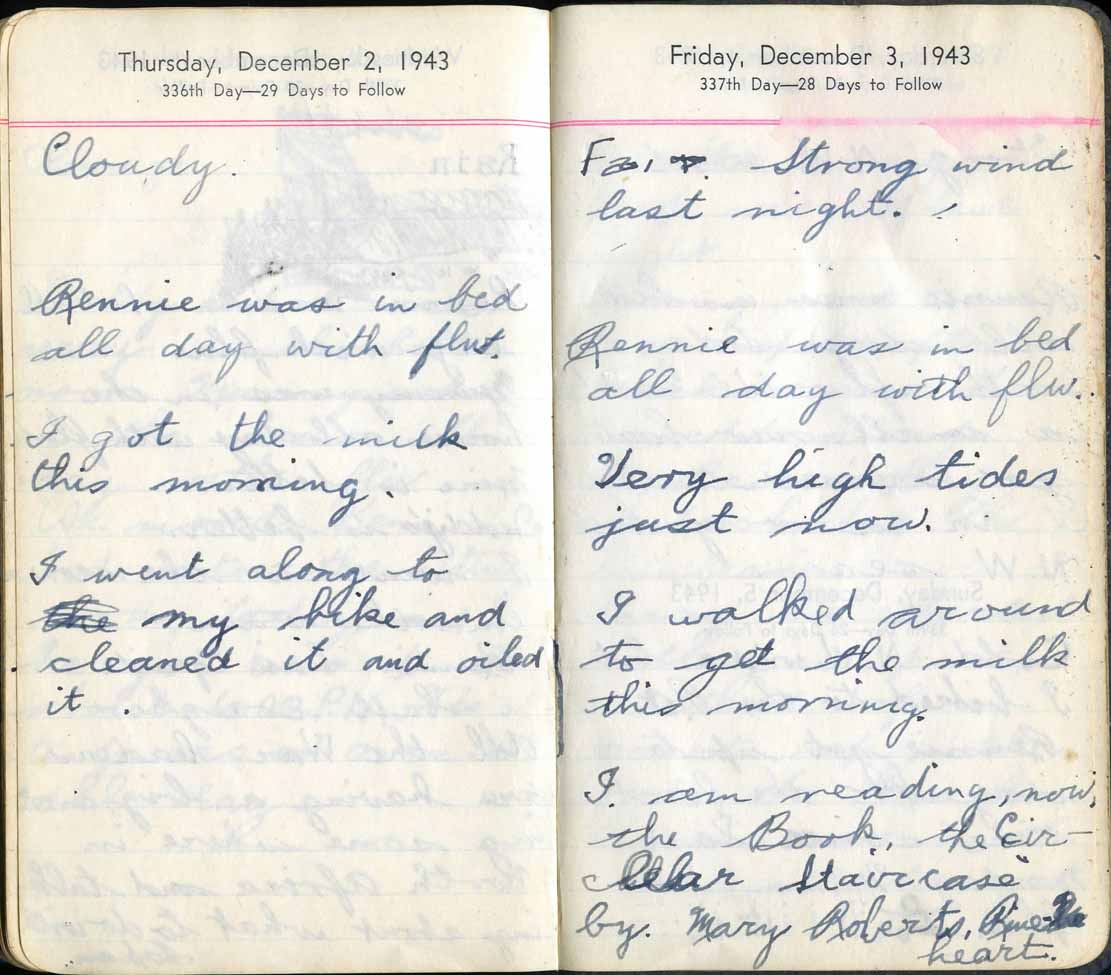 Thursday, December 2, 1943
336th Day—29 Days to Follow
Cloudy.
Rennie was in bed
all day with flu.
I got the milk
this morning.
I went along to
the my bike and
cleaned it and oiled
it.
Friday, December 3, 1943
337th Day—28 Days to Follow
Fair. Strong wind
last night.
Rennie was in bed
all day with flu.
Very high tides
just now.
I walked around
to get the milk
this morning.
I am reading, now,
the Book, the Cir-
cular Staircase
by. Mary Roberts, Rine
heart.